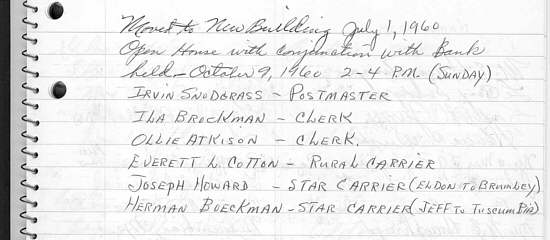 Moved to New Building July 1, 1960
Open House with conjunction with Bank
held - October 9, 1960 2-4 P.M. (SUNDAY)
IRVIN SNODGRASS - POSTMASTER
ILA BROCKMAN - CLERK
OLLIE ATKISON - CLERK.
EVERETT L. COTTON - RURAL CARRIER
JOSEPH HOWARD - STAR CARRIER (ELDON TO BRUMLEY)
HERMAN BOECKMAN - STAR CARRIER (JEFF TO TUSCUMBIA)